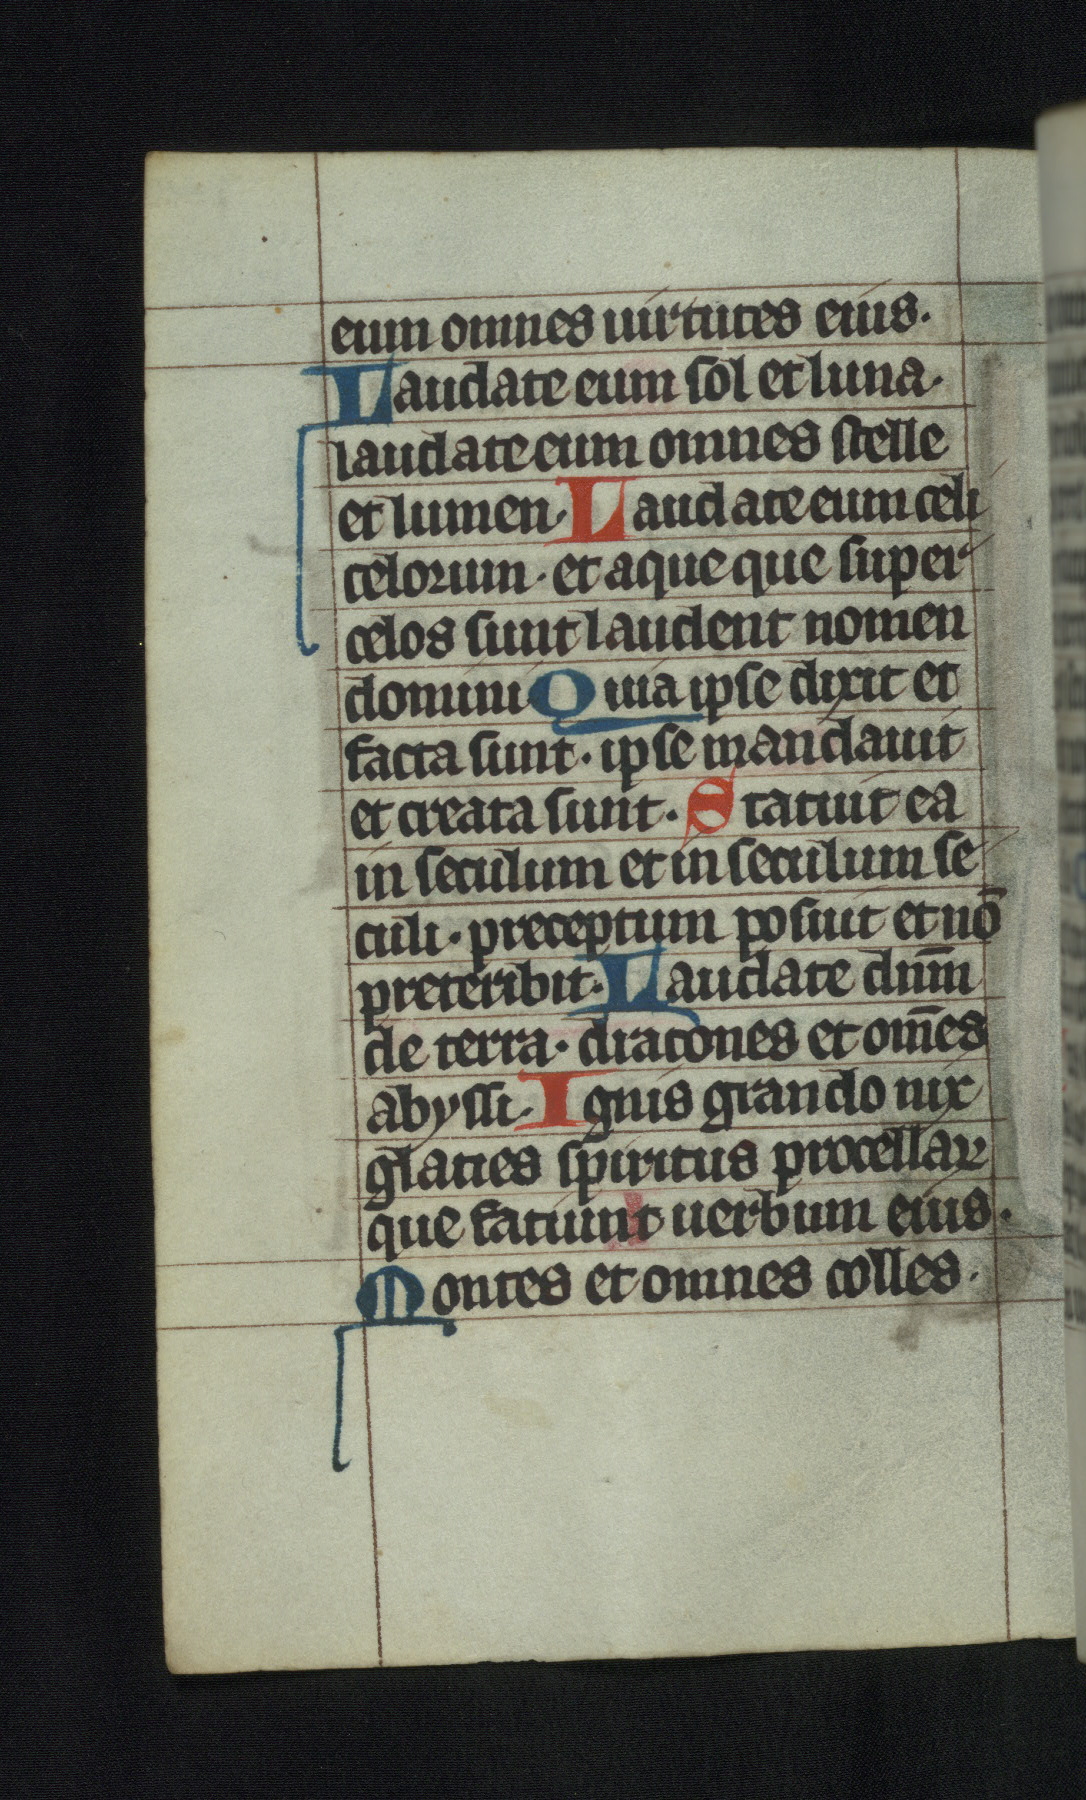 eum omnes uirtutes eius.
Laudate eum sol et luna.
laudate eum omnes stelle
et lumen. Laudate eum celi
celorum. et aque que super
celos sunt laudent nomen
domini Quia ipse dixit et
facta sunt. ipse mandauit
et creata sunt. Statuit ea
in seculum et in seculum se
culi. preceptum posuit et nō
preteribit. Laudate dnm̄
de terra. dracones et om̄es
abyssi. Ignis grando nix
glacies spiritus procellar
que faciunt uerbum eius.
Montes et omnes colles.